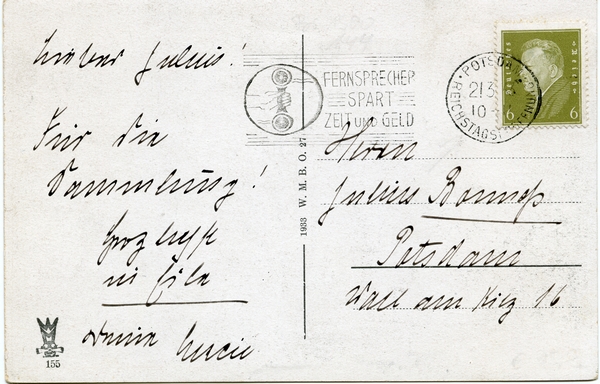 Lieber Julius!
Für die
Sammlung!
in Eile
Deine Lucie
155
1933 W. M. B. O. 27
FERNSPRECHER
SPART
ZEIT UND GELD
POTSDAM
21.3.
10
REICHSTAGS
Deutsches Reich
6 6
Herrn
Julius
Potsdam
Wall am Kiez 16